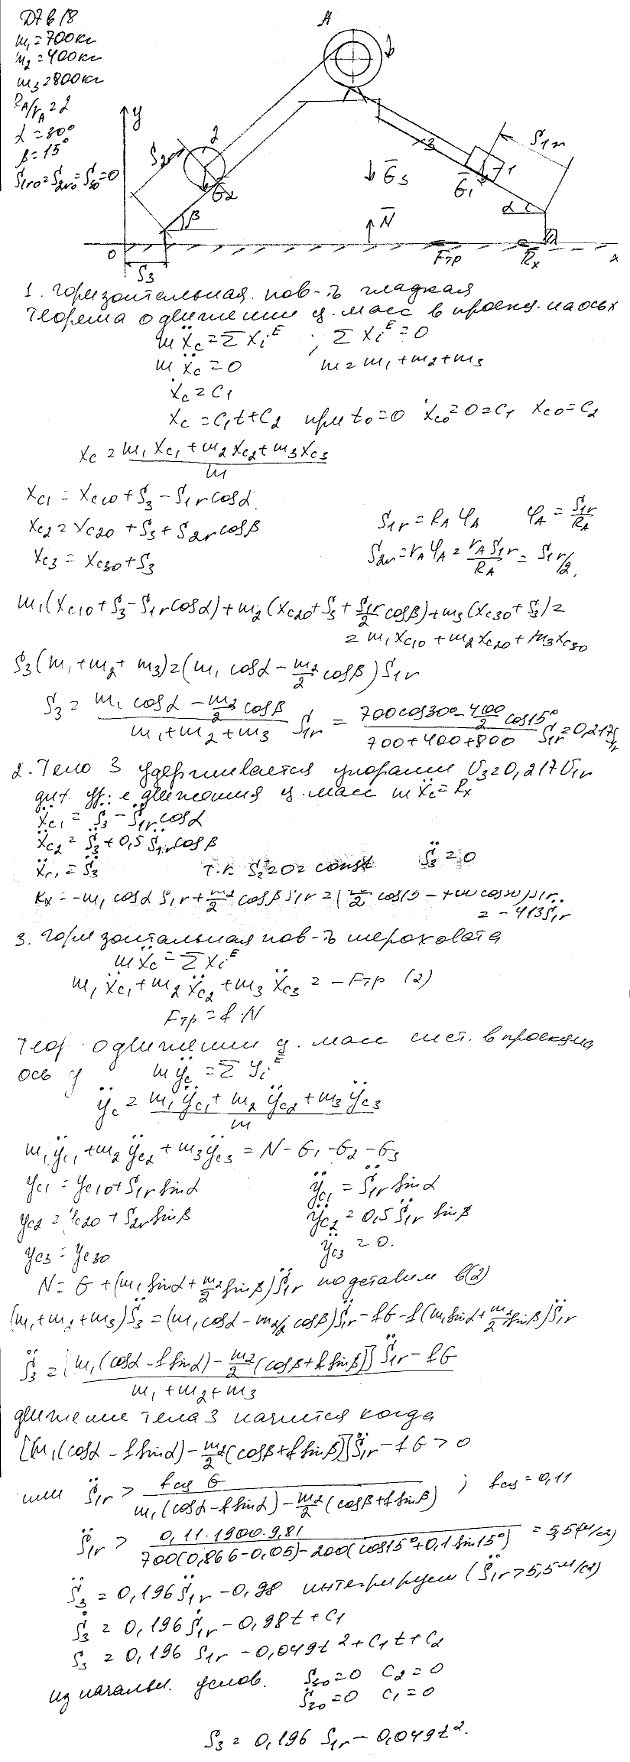 Д7 6/8
m₁=700кг
m₂=400кг
m₃=800кг
R_A/r_A=2
α=30°
β=15°
S₁r₀=S₂r₀=S₃₀=0
A
y
2
S₂r
G₂
β
3
S₁r
G₁
1
G₃
N
α
0
S₃
Fтр
Rx
x
1. Горизонтальная пов-ть гладкая
Теорема о движении ц. масс в проекц. на ось x
mẍc = ΣXiᴱ ; ΣXiᴱ=0
mẍc=0 m=m₁+m₂+m₃
ẋc=C₁
xc=C₁t+C₂ при t₀=0 ẋc₀=0=C₁ xc₀=C₂
xc = (m₁xc₁+m₂xc₂+m₃xc₃)/m
xc₁ = xc₁₀+S₃-S₁r cosα
xc₂ = xc₂₀+S₃+S₂r cosβ
xc₃ = xc₃₀+S₃
S₁r=R_Aφ_A φ_A=S₁r/R_A
S₂r=r_Aφ_A=r_A S₁r/R_A=S₁r/2.
m₁(xc₁₀+S₃-S₁r cosα)+m₂(xc₂₀+S₃+S₁r/2 cosβ)+m₃(xc₃₀+S₃)=
=m₁xc₁₀+m₂xc₂₀+m₃xc₃₀
S₃(m₁+m₂+m₃)=(m₁cosα-m₂/2 cosβ)S₁r
S₃=(m₁cosα-m₂/2 cosβ)/(m₁+m₂+m₃) S₁r = (700cos30°-400/2 cos15°)/(700+400+800) S₁r=0,217S₁r
2. Тело 3 удерживается упорами S₃=0,217S₁r
диф. ур-е движения ц. масс mẍc=Rx
ẍc₁=S̈₃-S̈₁r cosα
ẍc₂=S̈₃+0,5S̈₁r cosβ
ẍc₃=S̈₃ т.к. S₃=0=const S̈₃=0
Rx=-m₁cosα S̈₁r+m₂/2 cosβ S̈₁r=
=-413S̈₁r
3. Горизонтальная пов-ть шероховата
mẍc=ΣXiᴱ
m₁ẍc₁+m₂ẍc₂+m₃ẍc₃=-Fтр (2)
Fтр=f·N
Теор. о движении ц. масс сист. в проекц. на
ось y mÿc=ΣYiᴱ
ÿc=(m₁ÿc₁+m₂ÿc₂+m₃ÿc₃)/m
m₁ÿc₁+m₂ÿc₂+m₃ÿc₃=N-G₁-G₂-G₃
yc₁=yc₁₀+S₁r sinα ÿc₁=S̈₁r sinα
yc₂=yc₂₀+S₂r sinβ ÿc₂=0,5S̈₁r sinβ
yc₃=yc₃₀ ÿc₃=0.
N=G+(m₁sinα+m₂/2 sinβ)S̈₁r подставим в (2)
(m₁+m₂+m₃)S̈₃=(m₁cosα-m₂/2 cosβ)S̈₁r-fG-f(m₁sinα+m₂/2 sinβ)S̈₁r
S̈₃=([m₁(cosα-f sinα)-m₂/2(cosβ+f sinβ)]S̈₁r-fG)/(m₁+m₂+m₃)
движение тела 3 начнится когда
[m₁(cosα-f sinα)-m₂/2(cosβ+f sinβ)]S̈₁r-fG>0
или S̈₁r > fсц G/(m₁(cosα-f sinα)-m₂/2(cosβ+f sinβ)) ; fсц=0,11
S̈₁r > 0,11·1900·9,81/(700(0,866-0,05)-200(cos15°+0,1sin15°)) =5,5(м/с²)
S̈₃=0,196S̈₁r-0,98 интегрируем (S̈₁r>5,5м/с²)
Ṡ₃=0,196Ṡ₁r-0,98t+C₁
S₃=0,196S₁r-0,049t²+C₁t+C₂
из начальн. услов. S₃₀=0 C₂=0
Ṡ₃₀=0 C₁=0
S₃=0,196S₁r-0,049t².